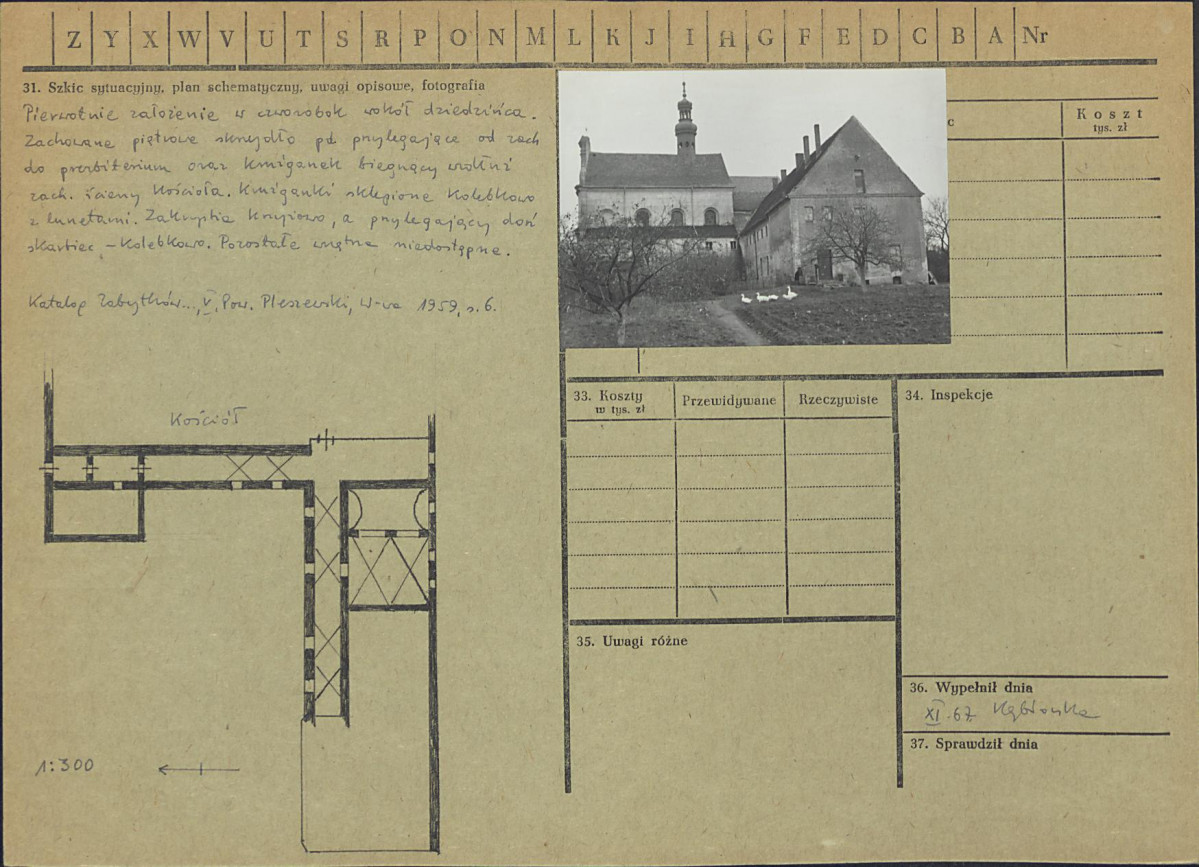 Z Y X W V U T S R P O N M L K J I H G F E D C B A Nr
31. Szkic sytuacyjny, plan schematyczny, uwagi opisowe, fotografia
Pierwotnie założenie w czworobok wokół dziedzińca.
Zachowane piętrowe skrzydło pd przylegające od zach
do prezbiterium oraz krużganek biegnący wzdłuż
zach. ściany kościoła. Krużganki sklepione kolebkowo
z lunetami. Zakrystia krzyżowo, a przylegający doń
skarbiec – kolebkowo. Pozostałe wnętrza niedostępne.
Katalog Zabytków..., V, Pow. Pleszewski, W-wa 1959, s. 6.
Kościół
1:300
c
Koszt
tys. zł
33. Koszty
w tys. zł
Przewidywane
Rzeczywiste
34. Inspekcje
35. Uwagi różne
36. Wypełnił dnia
XI.67
37. Sprawdził dnia